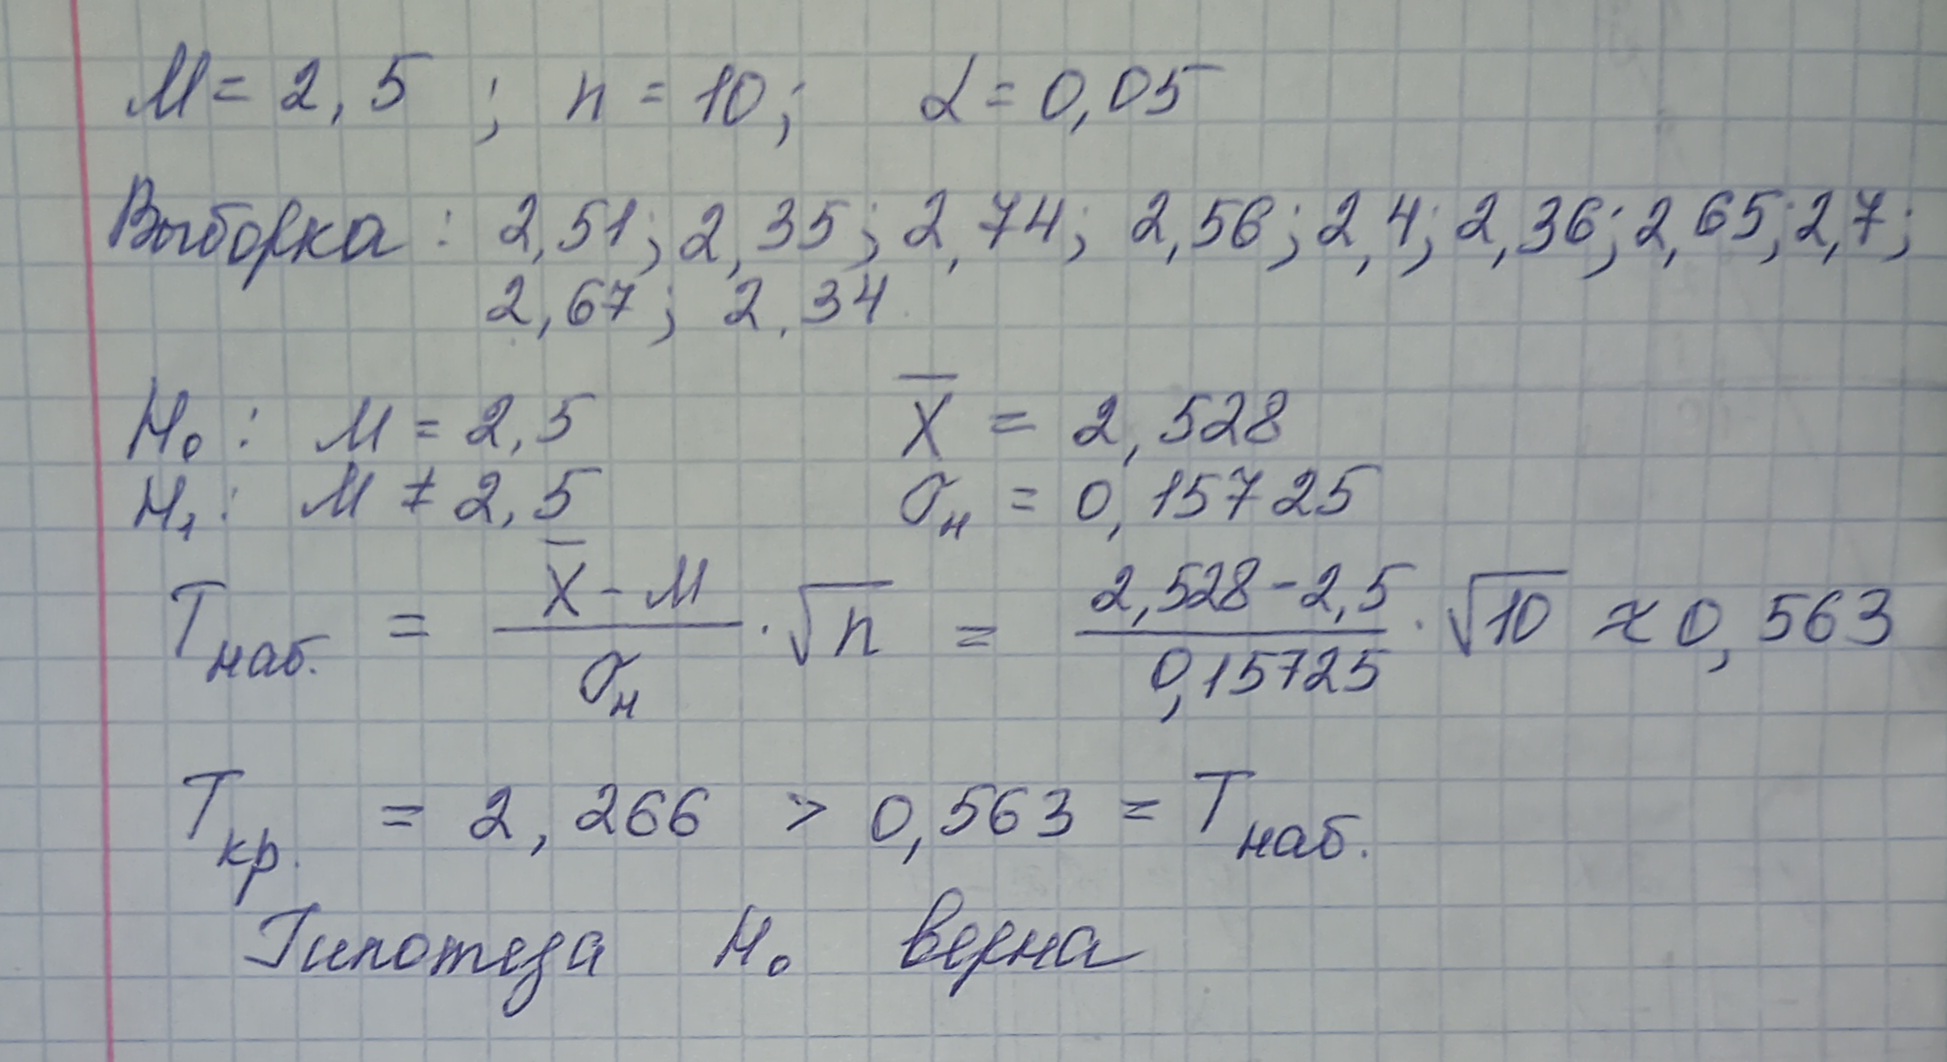 M = 2,5 ; n = 10; α = 0,05
Выборка : 2,51; 2,35; 2,74; 2,56; 2,4; 2,36; 2,65; 2,7;
2,67; 2,34
H₀ : M = 2,5 X̅ = 2,528
H₁ : M ≠ 2,5 σₙ = 0,15725
Tнаб. = (X̅ - M)/σₙ · √n = (2,528 - 2,5)/0,15725 · √10 ≈ 0,563
Tкр. = 2,266 > 0,563 = Tнаб.
Гипотеза H₀ верна